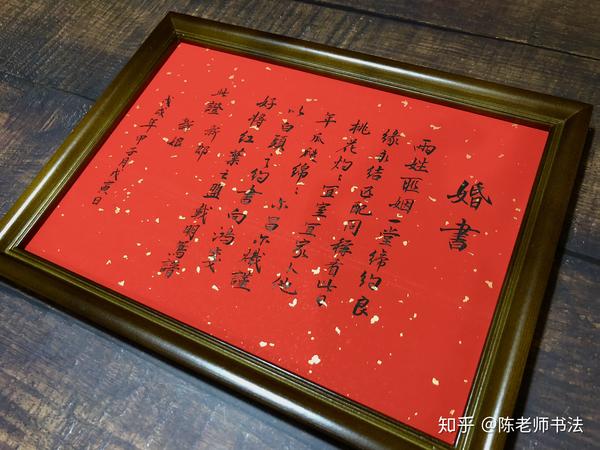 婚書
兩姓聯姻一堂締約良
緣永結匹配同稱看此日
桃花灼〻宜室宜家卜他
年瓜瓞綿〻尔昌尔熾謹
以白頭之約書向鴻箋
好將紅葉之盟載明鴛譜
此證 新郎
新娘
戊戌年甲子月戊寅日
知乎 @陈老师书法